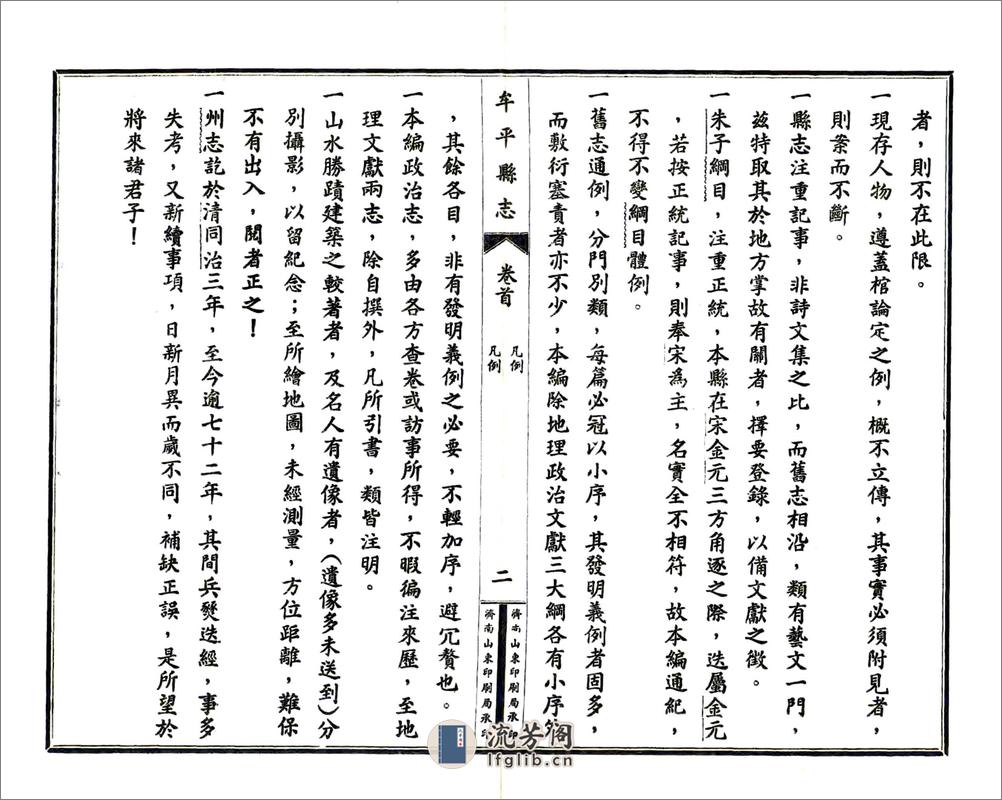 者，則不在此限。
一現存人物，遵蓋棺論定之例，概不立傳，其事實必須附見者，
則案而不斷。
一縣志注重記事，非詩文集之比，而舊志相沿，類有藝文一門，
茲特取其於地方掌故有關者，擇要登錄，以備文獻之徵。
一朱子綱目，注重正統，本縣在宋金元三方角逐之際，迭屬金元
，若按正統記事，則奉宋為主，名實全不相符，故本編通紀，
不得不變綱目體例。
一舊志通例，分門別類，每篇必冠以小序，其發明義例者固多，
而敷衍塞責者亦不少，本編除地理政治文獻三大綱各有小序外
牟平縣志
卷首
凡例
凡例
二
濟南山東印刷局承印
濟南山東印刷局承印
，其餘各目，非有發明義例之必要，不輕加序，避冗贅也。
一本編政治志，多由各方查卷或訪事所得，不暇徧注來歷，至地
理文獻兩志，除自撰外，凡所引書，類皆注明。
一山水勝蹟建築之較著者，及名人有遺像者，（遺像多未送到）分
別攝影，以留紀念；至所繪地圖，未經測量，方位距離，難保
不有出入，閱者正之！
一州志訖於清同治三年，至今逾七十二年，其間兵燹迭經，事多
失考，又新續事項，日新月異而歲不同，補缺正誤，是所望於
將來諸君子！
流芳阁
lfglib.cn